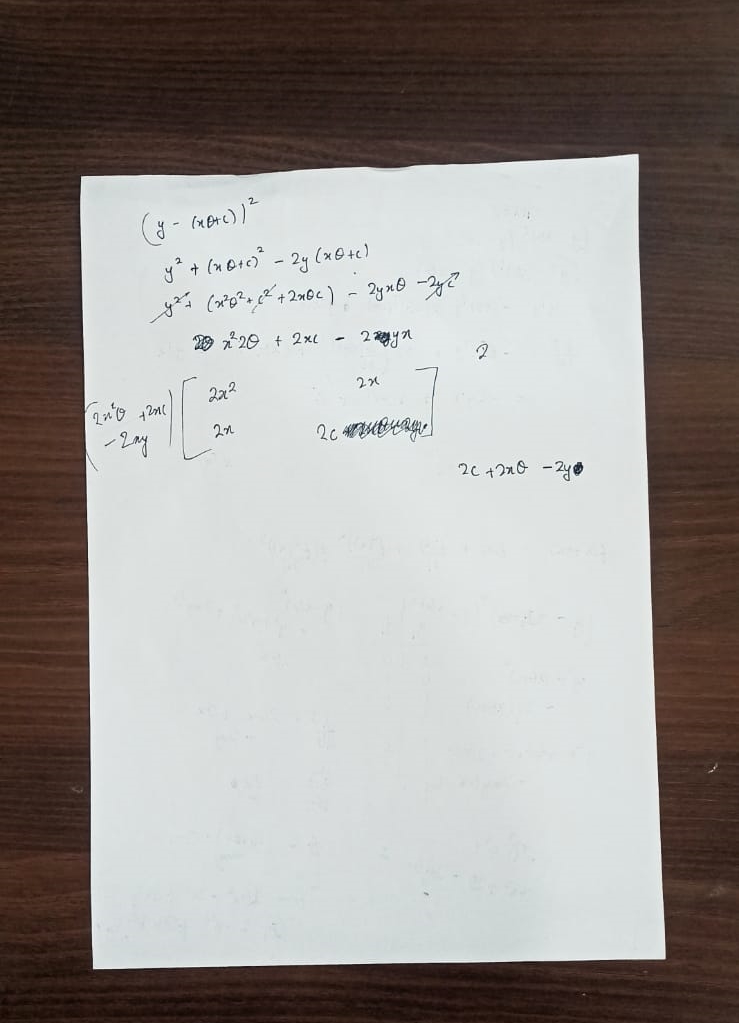 (y - (xθ+c))²
y² + (xθ+c)² - 2y (xθ+c)
y² + (x²θ² + c² + 2xθc) - 2yxθ - 2yc
x²2θ + 2xc - 2yx
2
2x² 2x
(2x²θ + 2xc
- 2xy)
2x 2c
2c + 2xθ - 2y